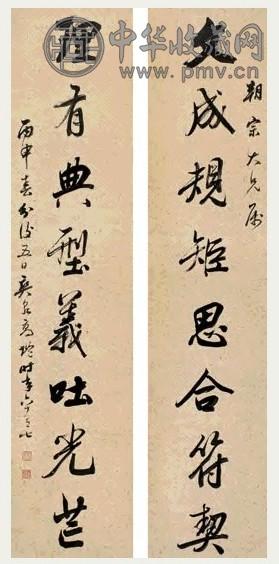 中华收藏网
www.pmv.cn
朝宗大兄屬
文成規矩思合符契
有典型義吐光芒
丙申春分後五日爽泉高塏時年六十七